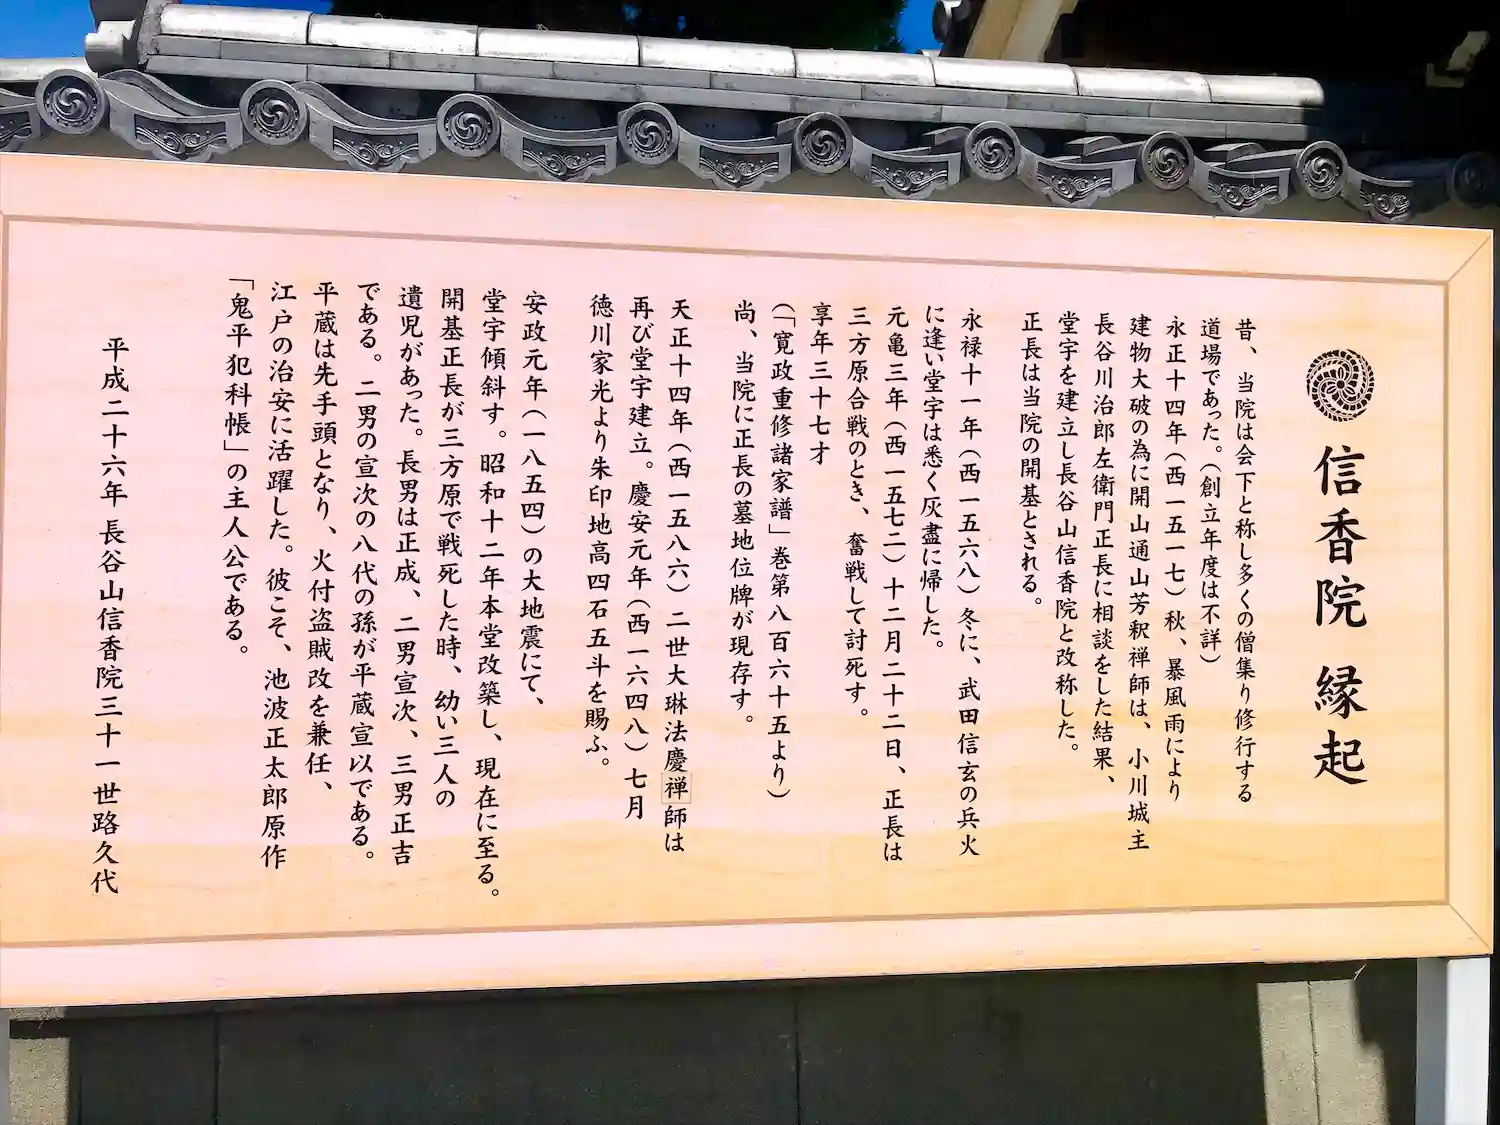 信香院 縁起
昔、当院は会下と称し多くの僧集り修行する
道場であった。(創立年度は不詳)
永正十四年(西一五一七)秋、暴風雨により
建物大破の為に開山通山芳釈禅師は、小川城主
長谷川治郎左衛門正長に相談をした結果、
堂宇を建立し長谷山信香院と改称した。
正長は当院の開基とされる。
永禄十一年(西一五六八)冬に、武田信玄の兵火
に逢い堂宇は悉く灰盡に帰した。
元亀三年(西一五七二)十二月二十二日、正長は
三方原合戦のとき、奮戦して討死す。
享年三十七才
(「寛政重修諸家譜」巻第八百六十五より)
尚、当院に正長の墓地位牌が現存す。
天正十四年(西一五八六)二世大琳法慶禅師は
再び堂宇建立。慶安元年(西一六四八)七月
徳川家光より朱印地高四石五斗を賜ふ。
安政元年(一八五四)の大地震にて、
堂宇傾斜す。昭和十二年本堂改築し、現在に至る。
開基正長が三方原で戦死した時、幼い三人の
遺児があった。長男は正成、二男宣次、三男正吉
である。二男の宣次の八代の孫が平蔵宣以である。
平蔵は先手頭となり、火付盗賊改を兼任、
江戸の治安に活躍した。彼こそ、池波正太郎原作
「鬼平犯科帳」の主人公である。
平成二十六年 長谷山信香院三十一世路久代